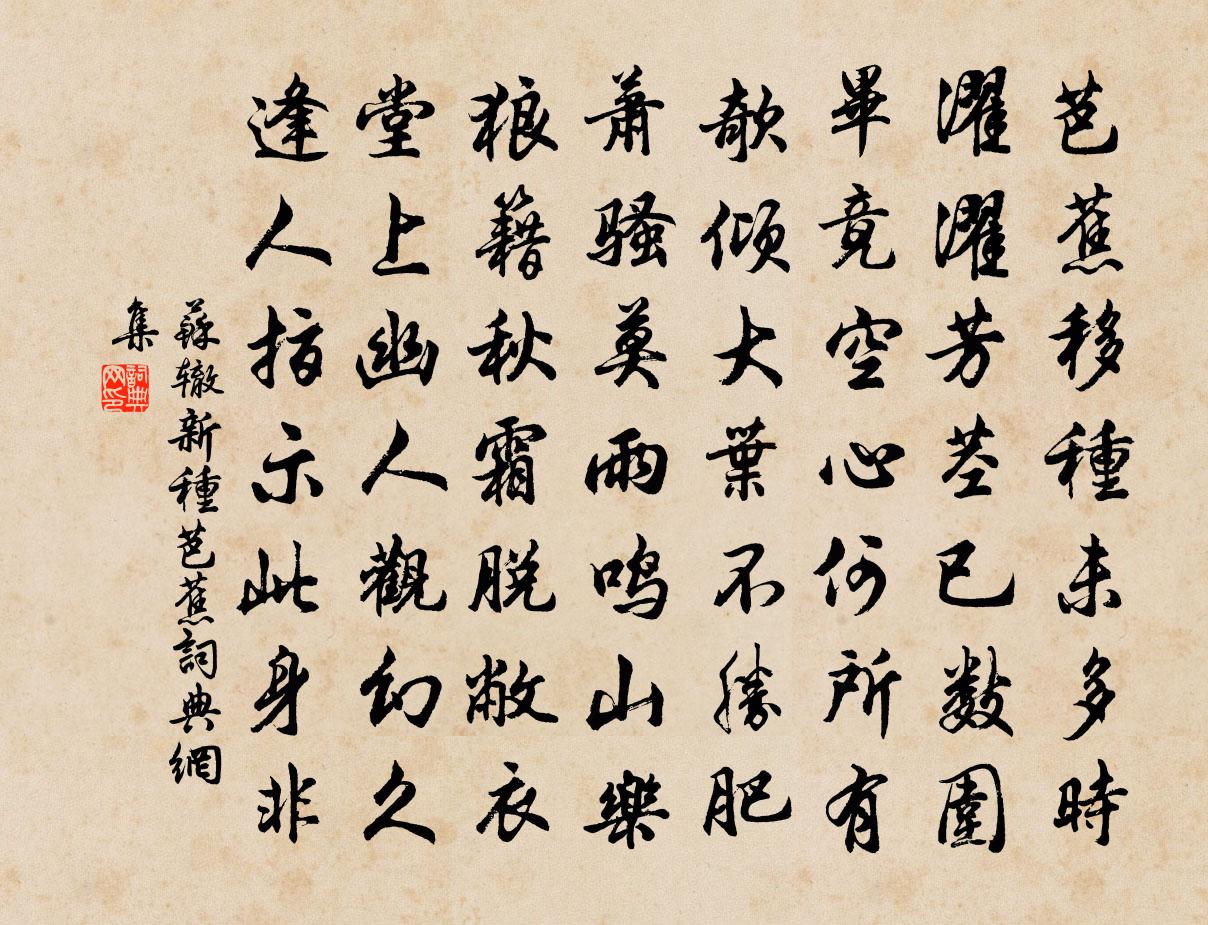 芭蕉移種未多時
濯濯芳莖已數圍
畢竟空心何所有
欹傾大葉不勝肥
蕭騷莫雨鳴山樂
狼籍秋霜脫敝衣
堂上幽人觀幻久
逢人指示此身非
蘇轍新種芭蕉詞典網
集
詞典
网印